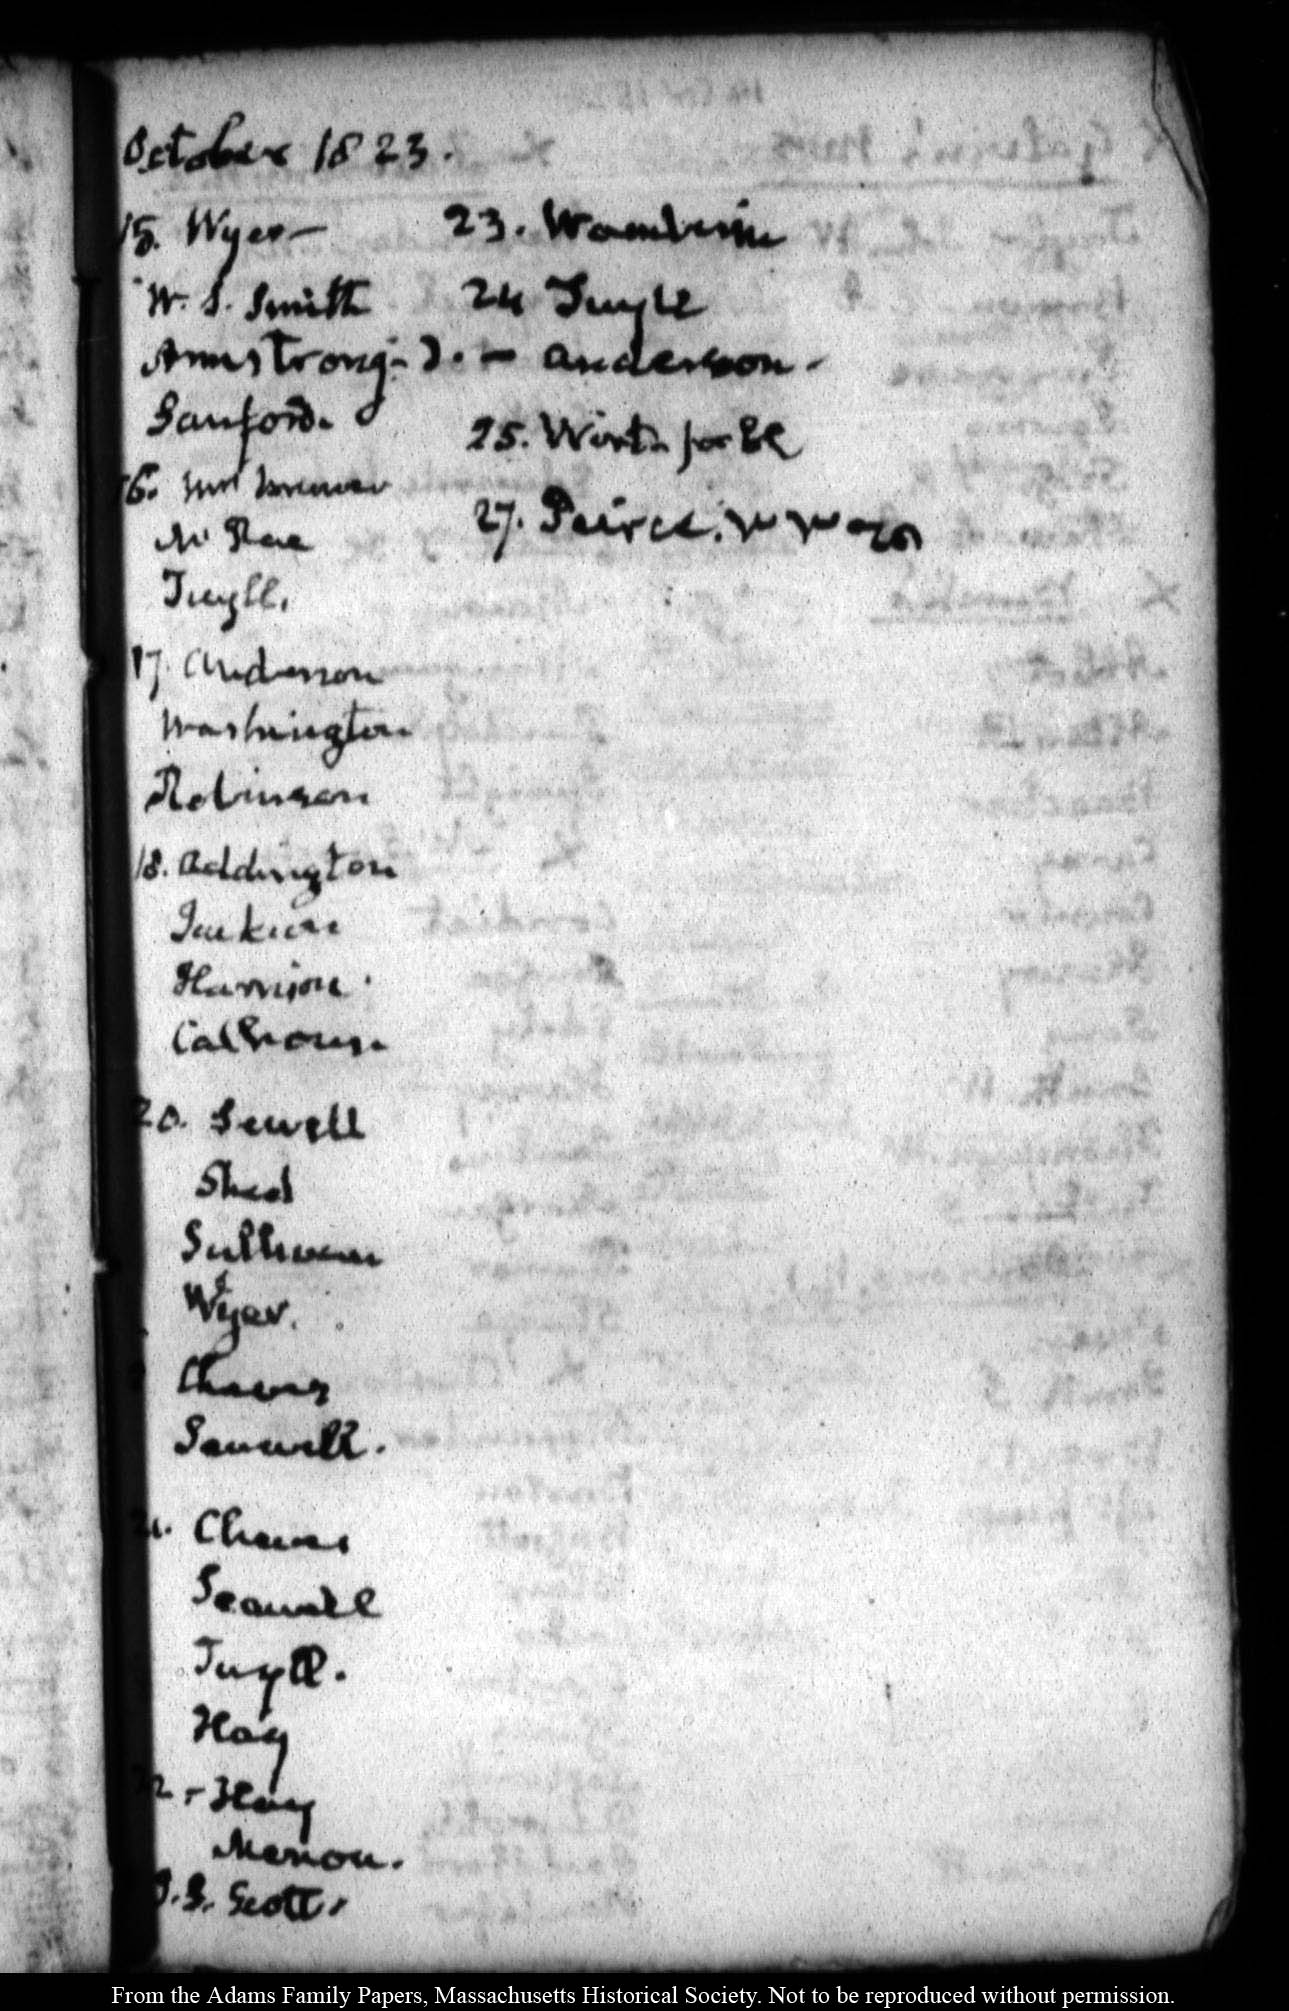 October 1823.
15. Wyer—
W. S. Smith
Armstrong - J. —
Sanford.
16. Mrs Brewer
McRae
Tuyll.
17. Anderson
Washington
Robinson
18. Addington
Harrison.
Calhoun.
20. Sewell
Shed
Sullivan
Wyer.
Cheves
Seawell.
21. Cheves
Seawell
Tuyll.
Hay
22. - Hay
Menou.
Scott.
23.
24 Tuyll
Anderson.
25. Wirt. for
27. Peirce.
From the Adams Family Papers, Massachusetts Historical Society. Not to be reproduced without permission.